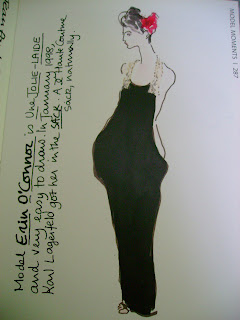 MODEL MOMENTS | 287
Model Erin O'Connor is Une JOLIE-LAIDE
and very easy to draw. In January 1998,
Karl Lagerfeld got her in the SACK. A Haute Couture
sack, naturally.